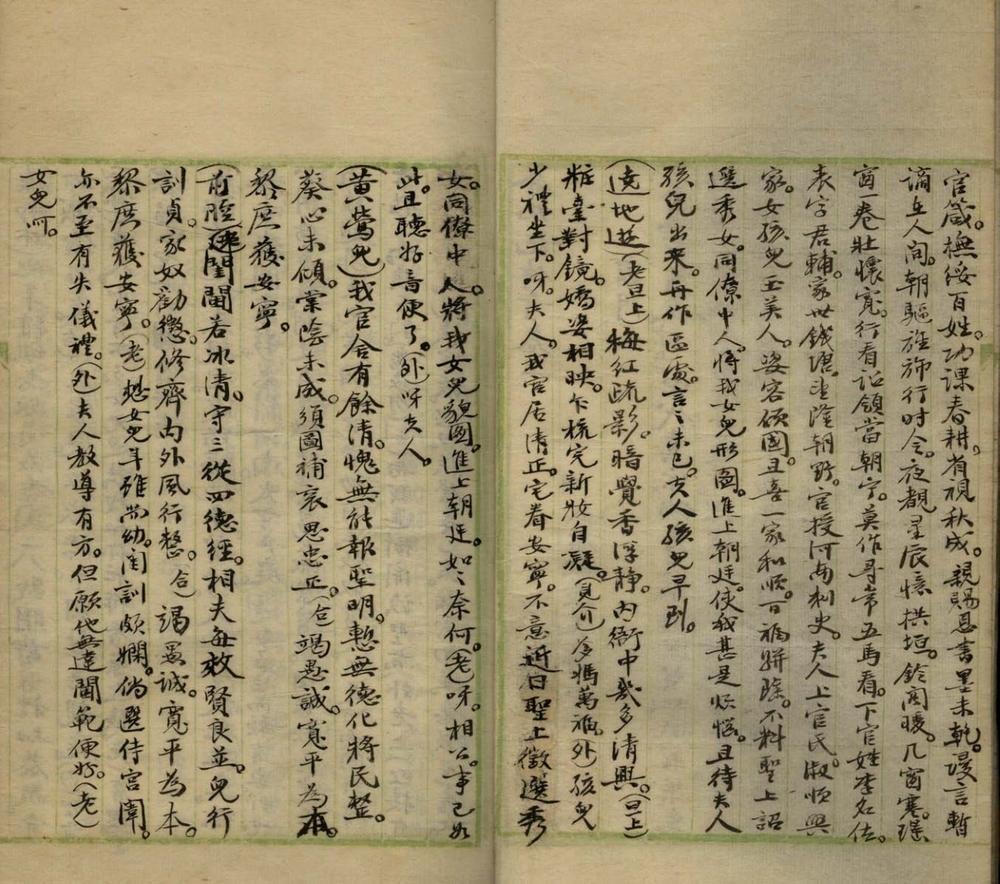 官箴。撫綏百姓。功課春耕。省視秋成。親賜恩書墨未乾。謾言暫
謫在人间。朝驅旌斾行时令。夜觀星辰憶拱垣。鈴阁暖。几窗寒。瑶
窗一卷壯懷寬。行看詔領當朝宁。莫作寻常五馬看。下官姓李名佐。
表字君輔。家世錢塘。望隆朝野。官授河南刺史。夫人上官氏。淑順興
家。女孩兒玉美人。姿容傾國。且喜一家和順。百福駢臻。不料聖上詔
選秀女。同僚中人。將我女兒形圖。進上朝廷。使我甚是烦惱。且待夫人
孩兒出来。再作區處。言言未已。夫人孩兒早到。
（遶地遊）（老旦上）梅红疏影。暗覺香浮静。内衙中幾多清興。（旦上）
粧臺對鏡。嬌姿相映。乍梳完新妝自凝。（見介）爹媽萬福。（外）孩兒
少禮坐下。呀。夫人。我官居清正。宅眷安寧。不意近日聖上徵選秀
女。同僚中人。將我女兒貌圖。進上朝廷。如之奈何。（老）呀。相公。事已如
此。且聽好音便了。（外）呀夫人。
（黄鶯兒）我官舍有餘清。愧無能報聖明。慙無德化將民整。
葵心未傾。棠陰未成。須圖補衮思忠正。（合）竭愚誠。寬平為本。
黎庶獲安寧。
（前腔）（老）閨閫若冰清。守三從四德經。相夫每效賢良並。兒行
訓貞。家奴勸懲。修齊内外風行整。（合）竭愚誠。寬平為本。
黎庶獲安寧。（老）想女兒年雖尚幼。闺訓頗嫻。倘選侍宫闈。
亦不至有失儀禮。（外）夫人教導有方。但願他無違閫範便好。（老）
女兒呵。